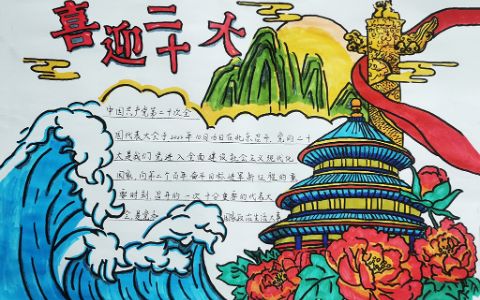 喜迎二十大
中国共产党第二十次全
国代表大会于2022年10月16日在北京召开，党的二十
大是我们党进入全面建设社会主义现代化
国家，向第二个百年奋斗目标进军新征程的重
要时刻，召开的一次十分重要的代表大
会，是党和国家政治生活大事